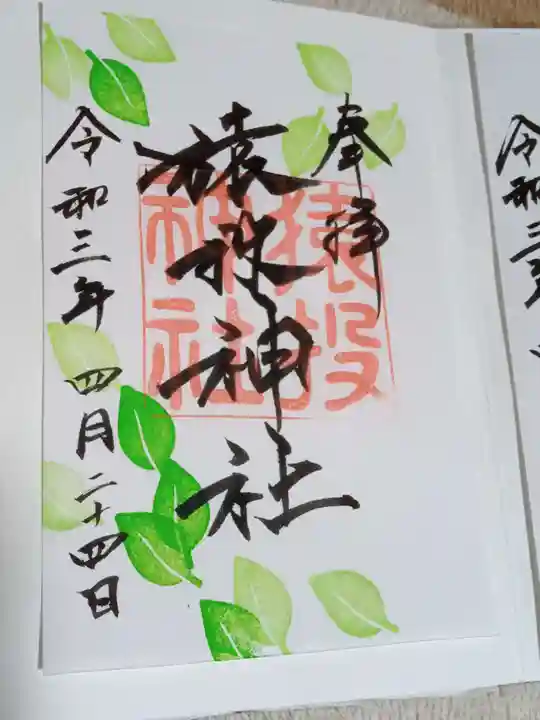 奉拝
猿投神社
猿投
神社
令和三年 四月二十四日
令和三年